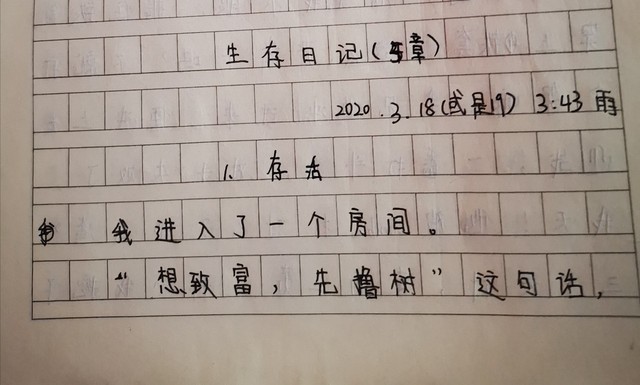 生存日记(序章)
2020.3.18(或是19) 3:43 雨
1. 存活
我进入了一个房间。
“想致富，先撸树”这句话，